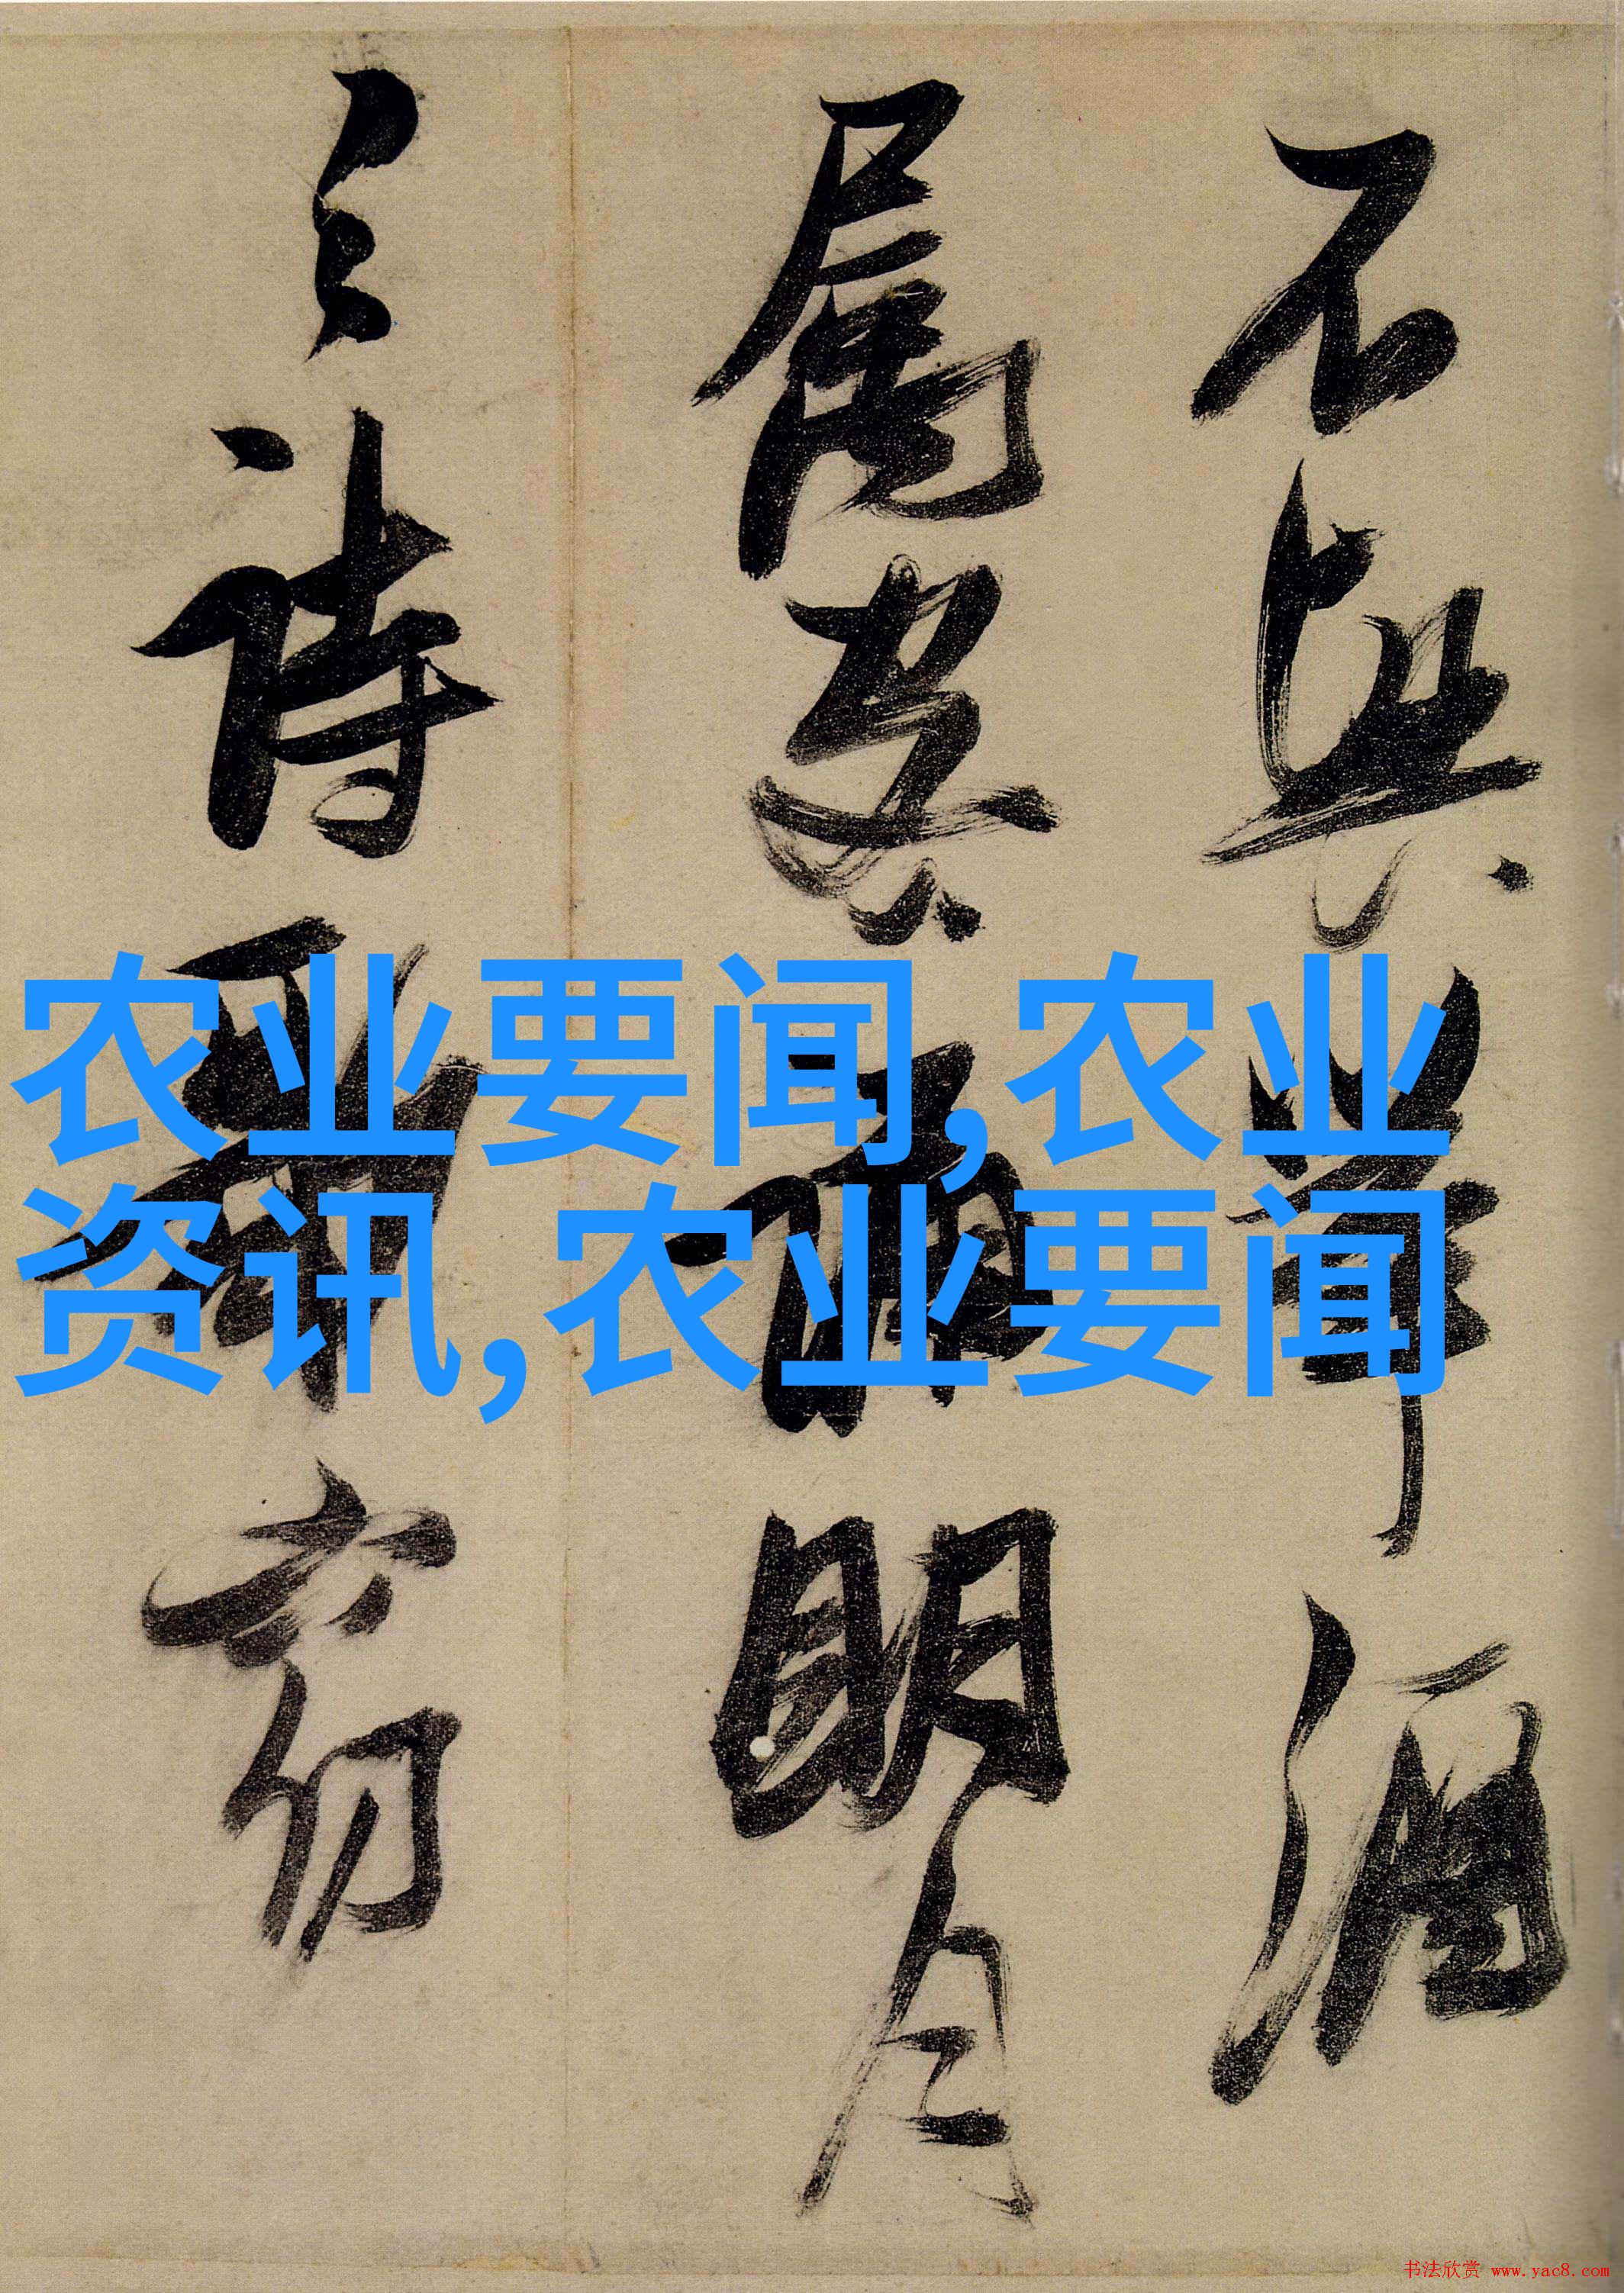 不興舉酒
屬客誦明月
之詩歌窈
农业要闻,农业
资讯,农业要闻
书法欣赏 www.yac8.com